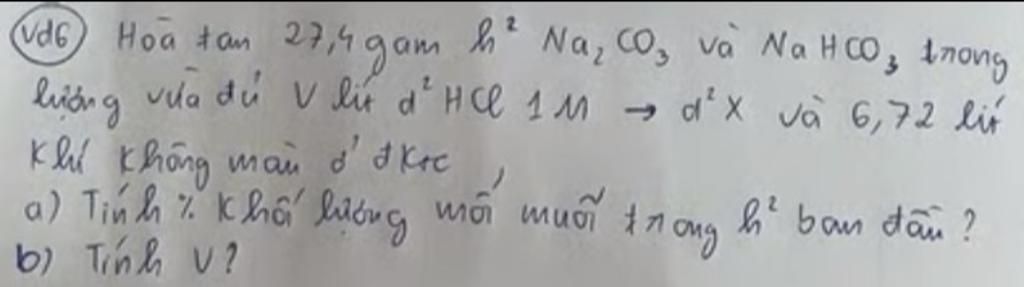 Vd6 Hoà tan 27,4 gam h² Na₂CO₃ và NaHCO₃ trong
lượng vừa đủ V lít d² HCl 1M → d² X và 6,72 lít
khí không màu ở đktc
a) Tính % khối lượng mỗi muối trong h² ban đầu?
b) Tính V?